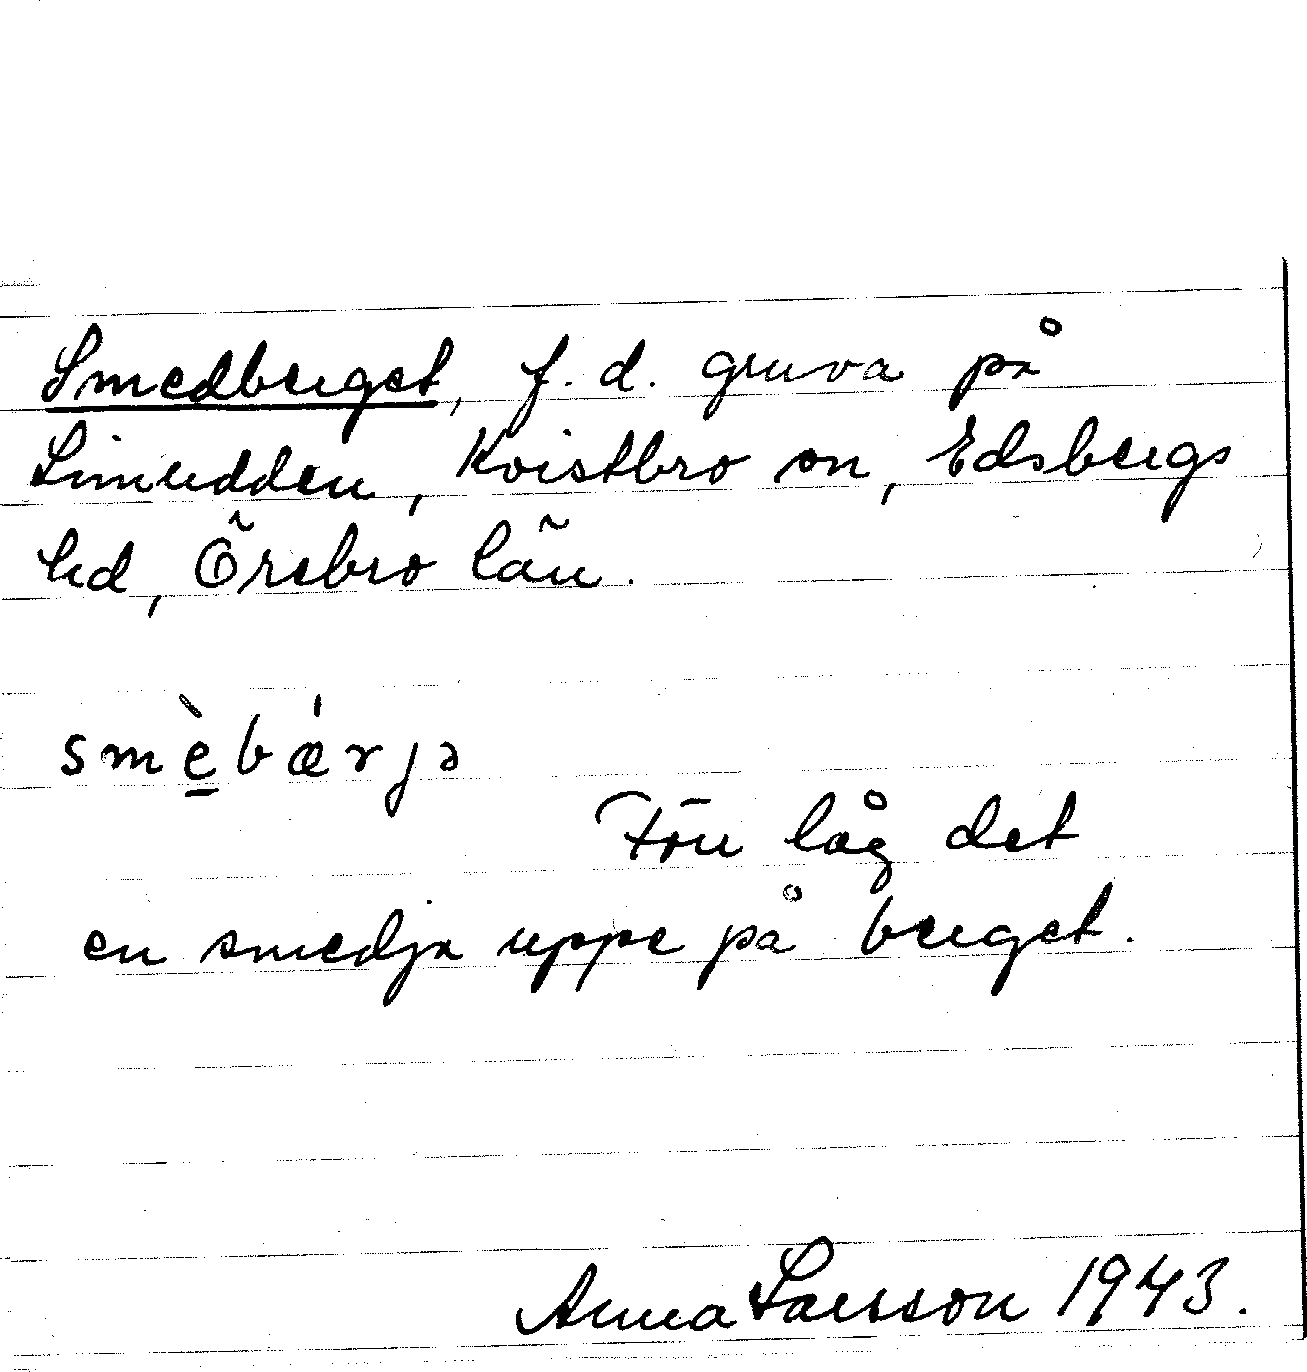 Smedberget, f.d. gruva på
Limudden, Kvistbro sn, Edsbergs
hd, Örebro län.
smèbǽrjə
Förr låg det
en smedja uppe på berget.
Anna Larsson 1943.